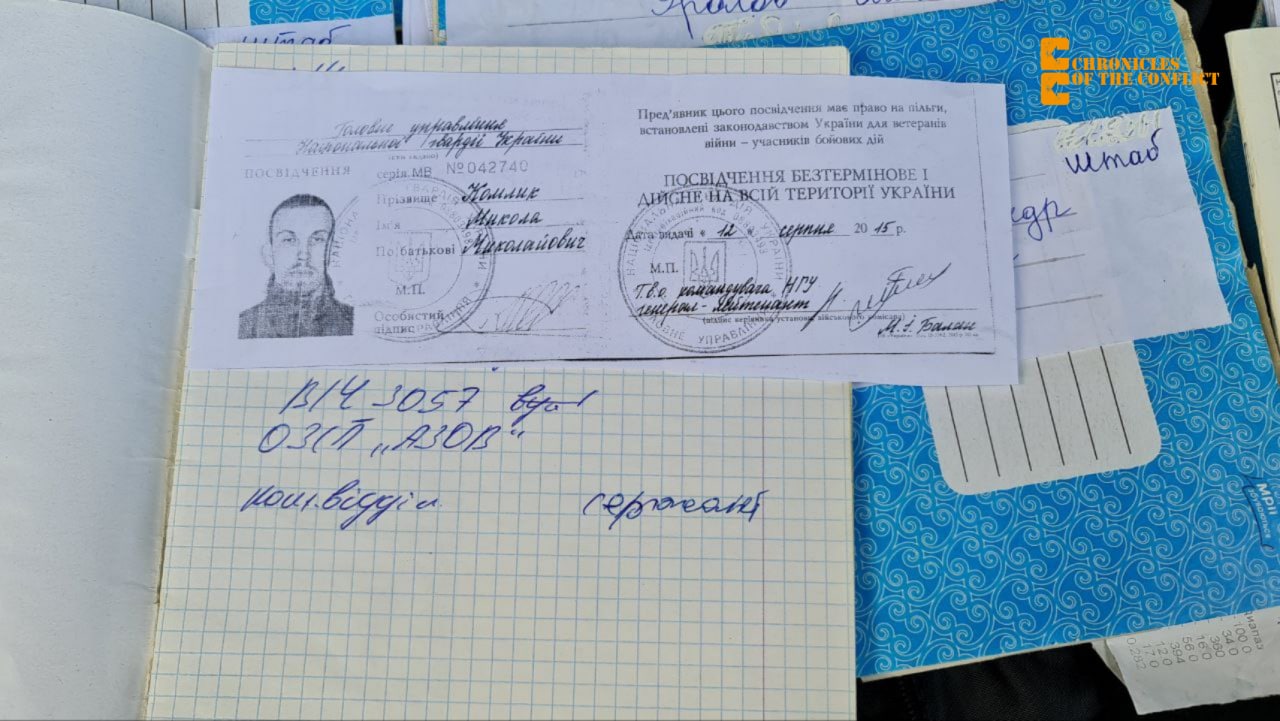 CHRONICLES
OF THE CONFLICT
штаб
Головне управління
Національної гвардії України
ПОСВІДЧЕННЯ
серія МВ №042740
Прізвище Комлик
Ім'я Микола
По батькові Миколайович
М.П.
Особистий
підпис
Пред'явник цього посвідчення має право на пільги,
встановлені законодавством України для ветеранів
війни – учасників бойових дій
ПОСВІДЧЕННЯ БЕЗТЕРМІНОВЕ І
ДІЙСНЕ НА ВСІЙ ТЕРИТОРІЇ УКРАЇНИ
Дата видачі « 12 » серпня 20 15 р.
М.П.
Т.в.о. командувача НГУ
генерал-лейтенант
М.І. Балан
В/Ч 3057
ОЗСП „АЗОВ“
ком. відділ. сержант
штаб
Мрії
100 0
34 0
380
16 0
56 0
394
12 0
17 0
0,292